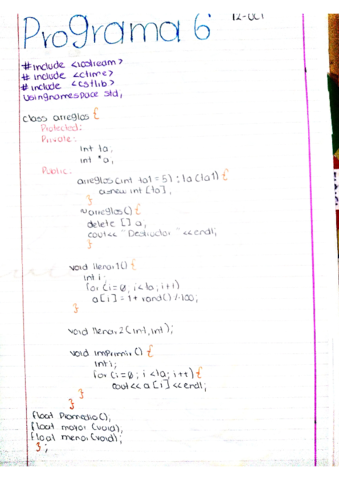 Programa 6
12-oct
# include <iostream>
# include <ctime>
# include <cstlib>
Usingnamespace std;
class arreglos {
Protected:
Private:
int ta;
int *a;
Public:
arreglos(int ta1=5) : ta(ta1) {
a=new int [ta];
}
~arreglos() {
delete [] a;
cout<< "Destructor" <<endl;
}
void llenar1() {
int i;
for (i=0; i<ta; i++)
a[i]= 1+ rand() %100;
}
void llenar2(int,int);
void imprimir() {
int i;
for (i=0; i<ta; i++) {
cout<<a[i]<<endl;
}
}
float Promedio();
float mayor (void);
float menor (void);
};